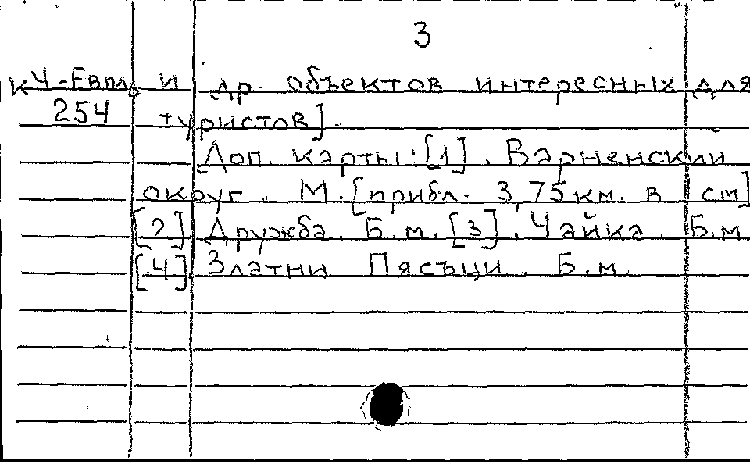 3
К4-Евпл и др. объектов интересных для
254 туристов].
Доп. карты: [1]. Варненский
округ. М. [прибл. 3,75 км. в см]
[2] Дружба. Б.м. [3]. Чайка. Б.м.
[4] Златни Пясъци. Б.м.